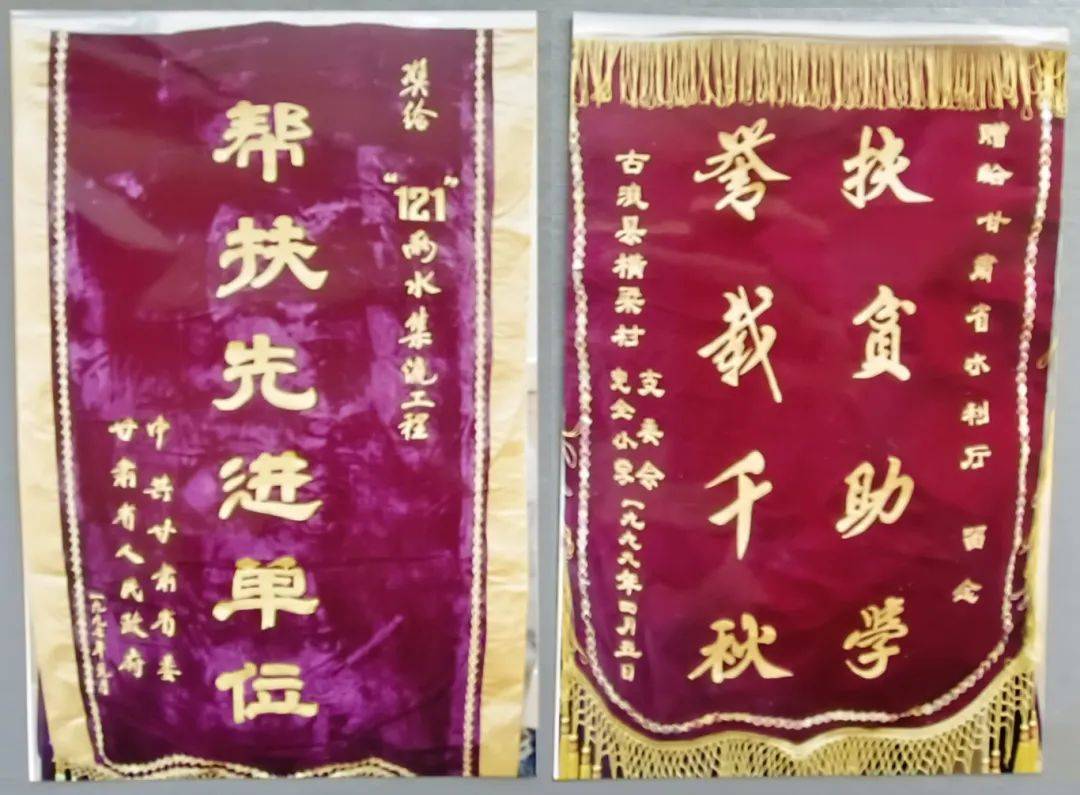 奖给
“121”雨水集流工程
帮扶先进单位
中共甘肃省委
甘肃省人民政府
一九九七年元月
赠给甘肃省水利厅 留念
扶贫助学
誉载千秋
古浪县横梁村
支委会
完全小学
一九九九年四月五日